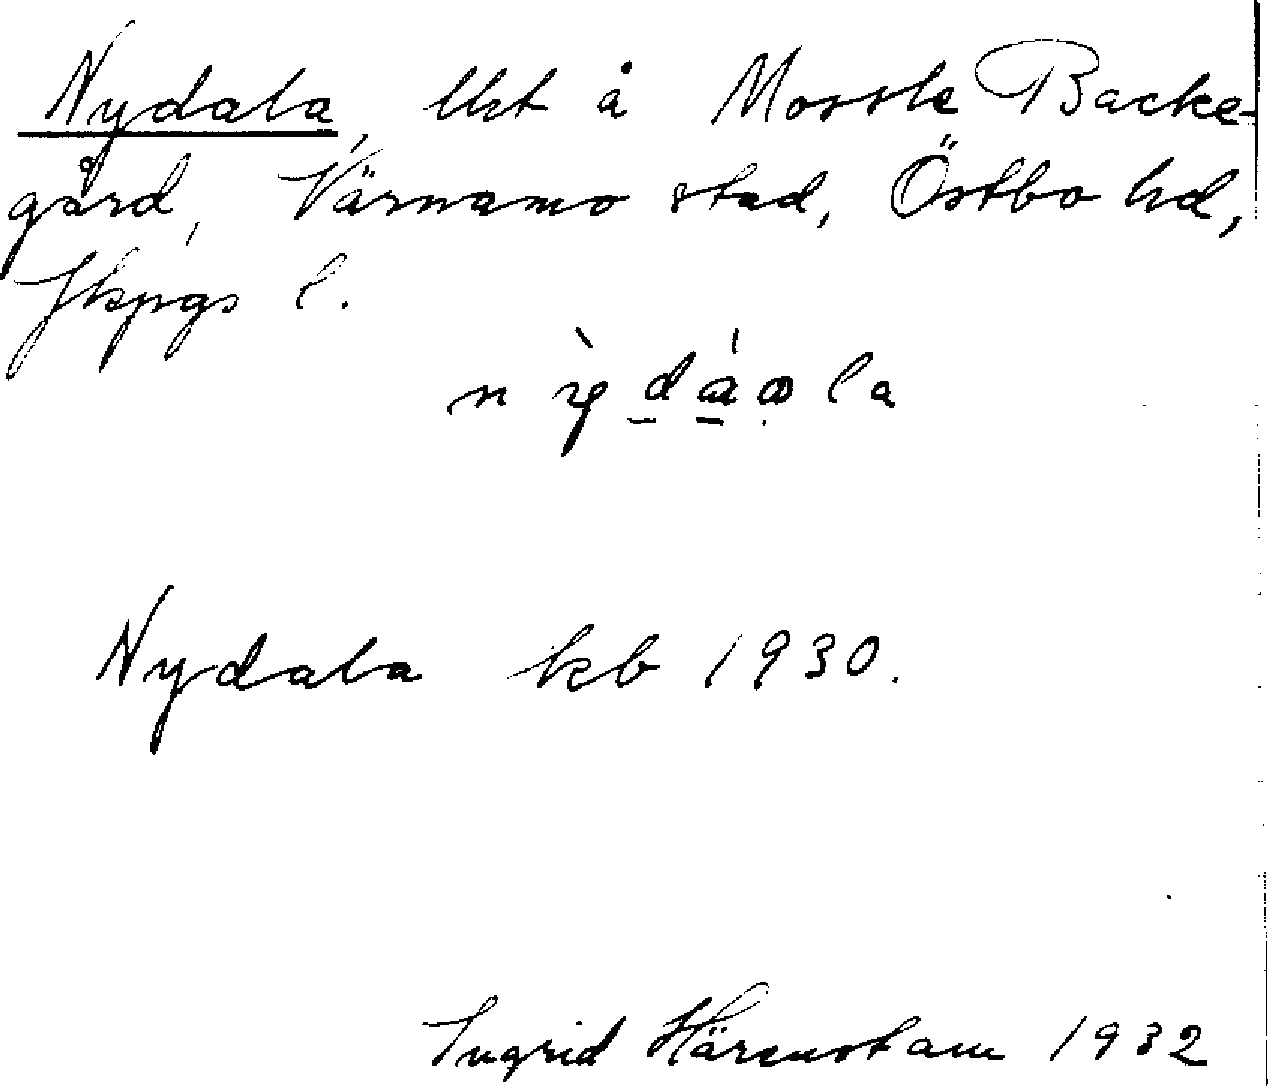 Nydala, lht å Mossle Backe-
gård, Värnamo stad, Östbo hd,
Jkpgs l.
Nydala kb 1930.
Ingrid Härenstam 1932